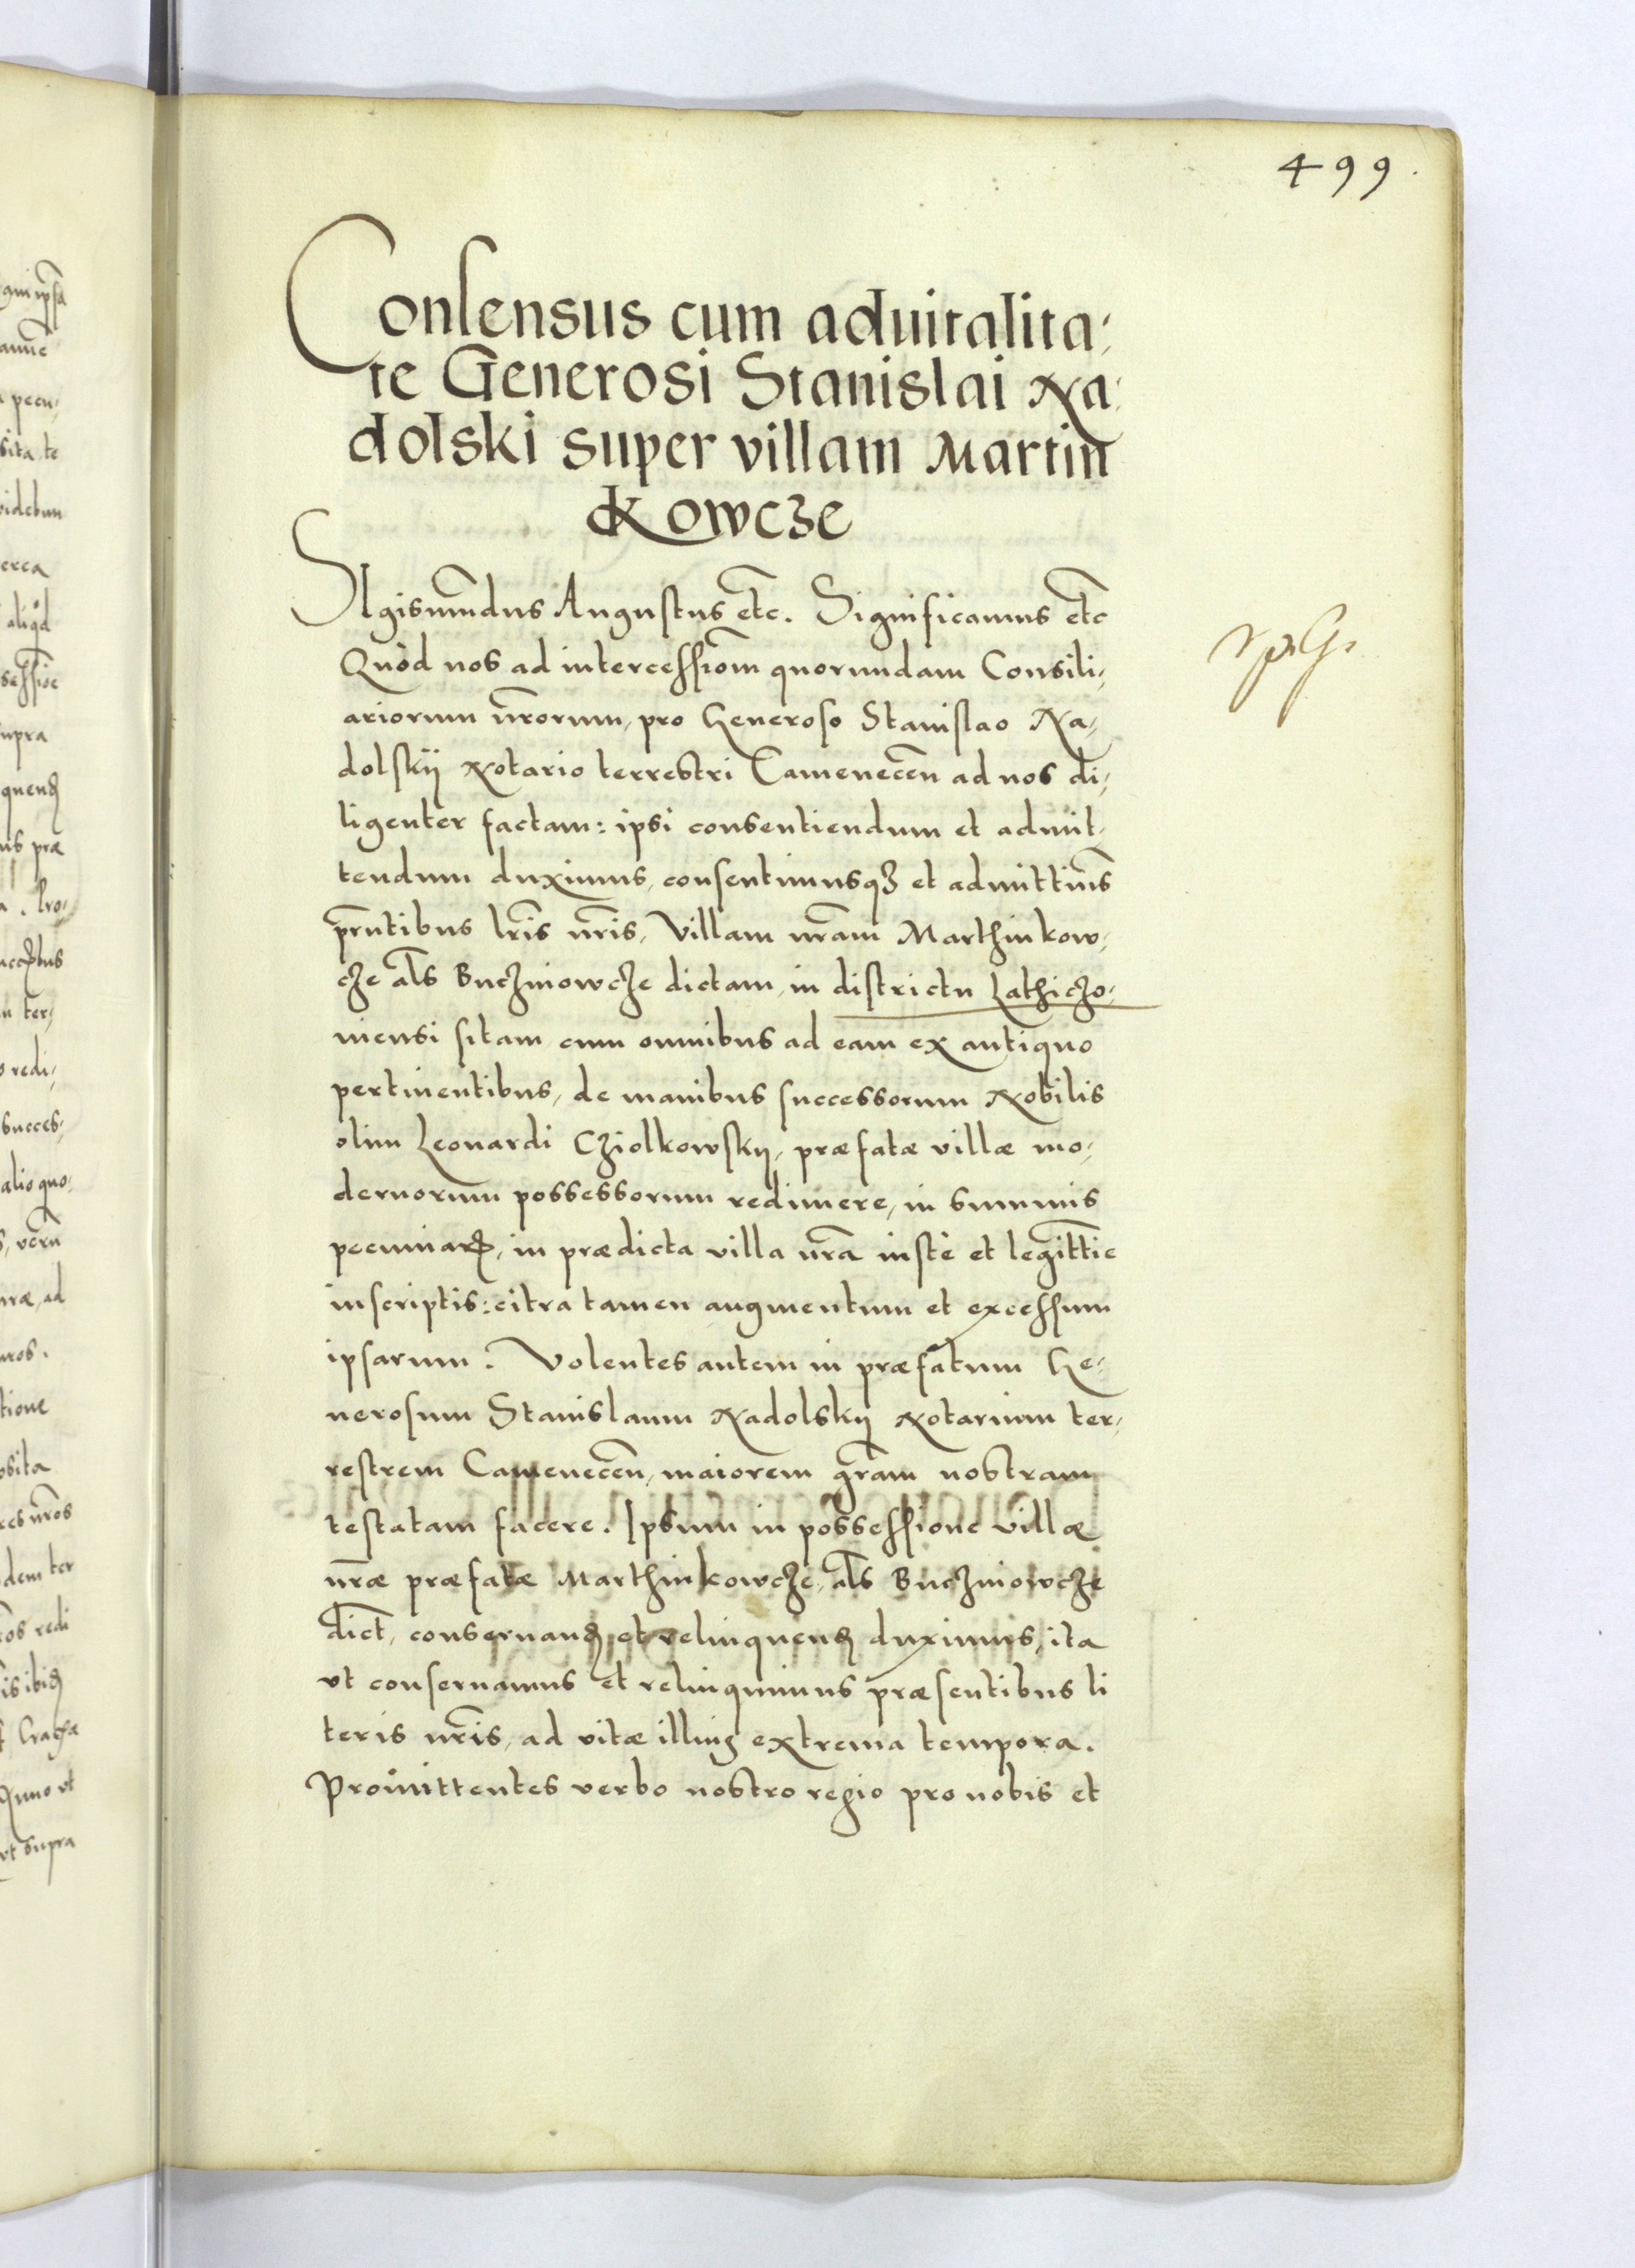 499.
Consensus cum aduitalita-
te Generosi Stanislai Na-
dolski super villam Martin
kowcze
SIgismūdus Augustus etc. Significamus etc
Quòd nos ad intercessiom̄ quorundam Consili-
ariorum nr̄orum, pro Generoso Stanislao Na-
dolskÿ Notario terrestri Camenecen̄ ad nos di-
ligenter factam: ipsi consentiendum et admit-
tendum duximus, consentimusqʒ et admittim̄s
pn̄tibus lr̄is nr̄is, Villam nr̄am Marthinkow-
cze al̄s Buczniowcze dictam, in districtu Lathiczo-
niensi sitam cum omnibus ad eam ex antiquo
pertinentibus, de manibus successorum Nobilis
olim Leonardi Cziolkowskÿ, præfatæ villæ mo-
dernorum possessorum redimere, in summis
pecuniaꝝ, in prædicta villa nr̄a iustè et legittīe
inscriptis: citra tamen augmentum et excessum
ipsarum. Volentes autem in præfatum Ge-
nerosum Stanislaum Nadolskÿ Notarium ter-
restrem Camenecen̄, maiorem gr̄am nostram
testatam facere. Ipsum in possessione villæ
nr̄æ præfatæ Marthinkowcze, al̄s Buczniowcze
dict̄, conseruanđ et relinquenđ duximus, ita
vt conseruamus et relinquimus præsentibus li
teris nr̄is, ad vitæ illiuꝰ extrema tempora.
Promittentes verbo nostro regio pro nobis et